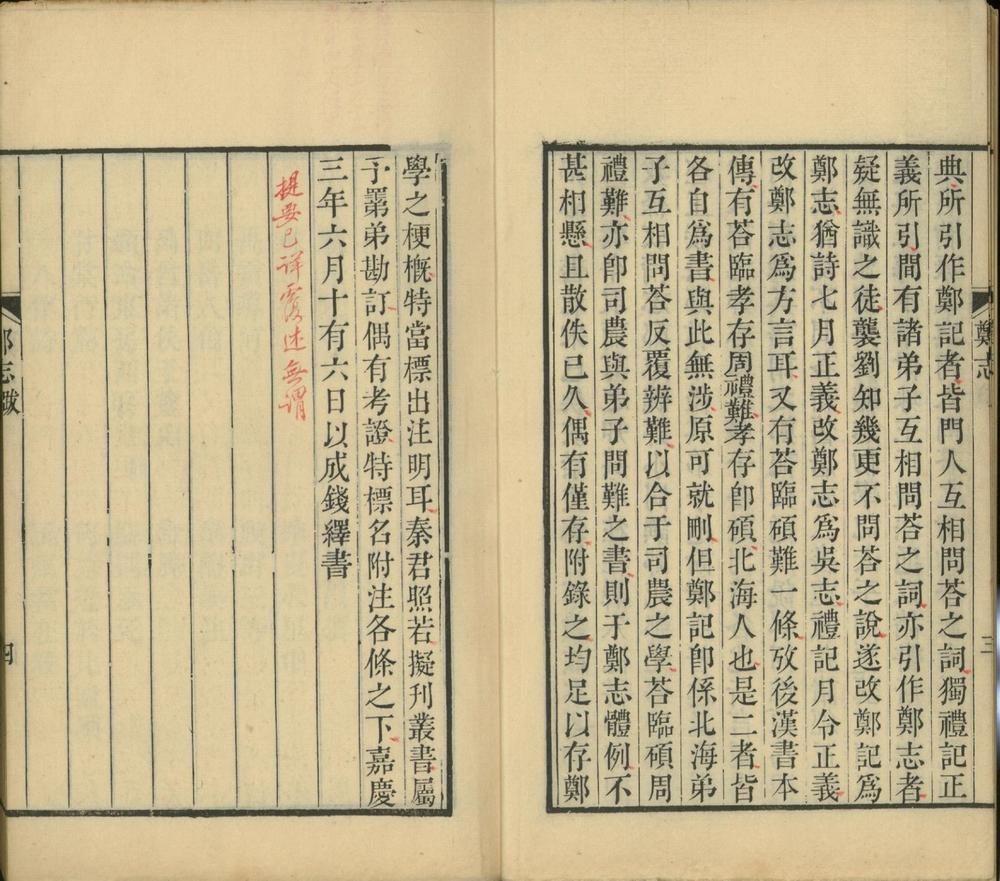 鄭志
三
典所引作鄭記者皆門人互相問荅之詞獨禮記正
義所引間有諸弟子互相問荅之詞亦引作鄭志者
疑無識之徒襲劉知幾更不問荅之說遂改鄭記爲
鄭志猶詩七月正義改鄭志爲吳志禮記月令正義
改鄭志爲方言耳又有荅臨碩難一條攷後漢書本
傳有荅臨孝存周禮難孝存卽碩北海人也是二者皆
各自爲書與此無涉原可就刪但鄭記卽係北海弟
子互相問荅反覆辨難以合于司農之學荅臨碩周
禮難亦卽司農與弟子問難之書則于鄭志體例不
甚相懸且散佚已久偶有僅存附錄之均足以存鄭
學之梗槪特當標出注明耳秦君照若擬刊叢書屬
予罤弟勘訂偶有考證特標名附注各條之下嘉慶
三年六月十有六日以成錢繹書
提要已詳覆述無謂
志敍
四